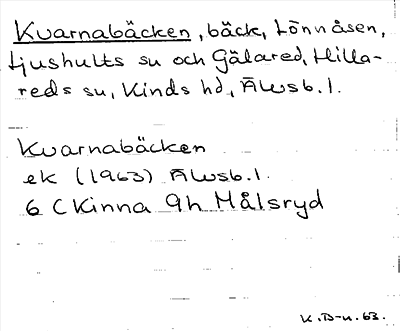 Kvarnabäcken, bäck, Lönnåsen,
Ljushults sn och Gälared, Hilla-
reds sn, Kinds hd, Älvsb. l.
Kvarnabäcken
ek (1963) Älvsb. l.
6 C Kinna 9h Målsryd
K. B-n. 63.